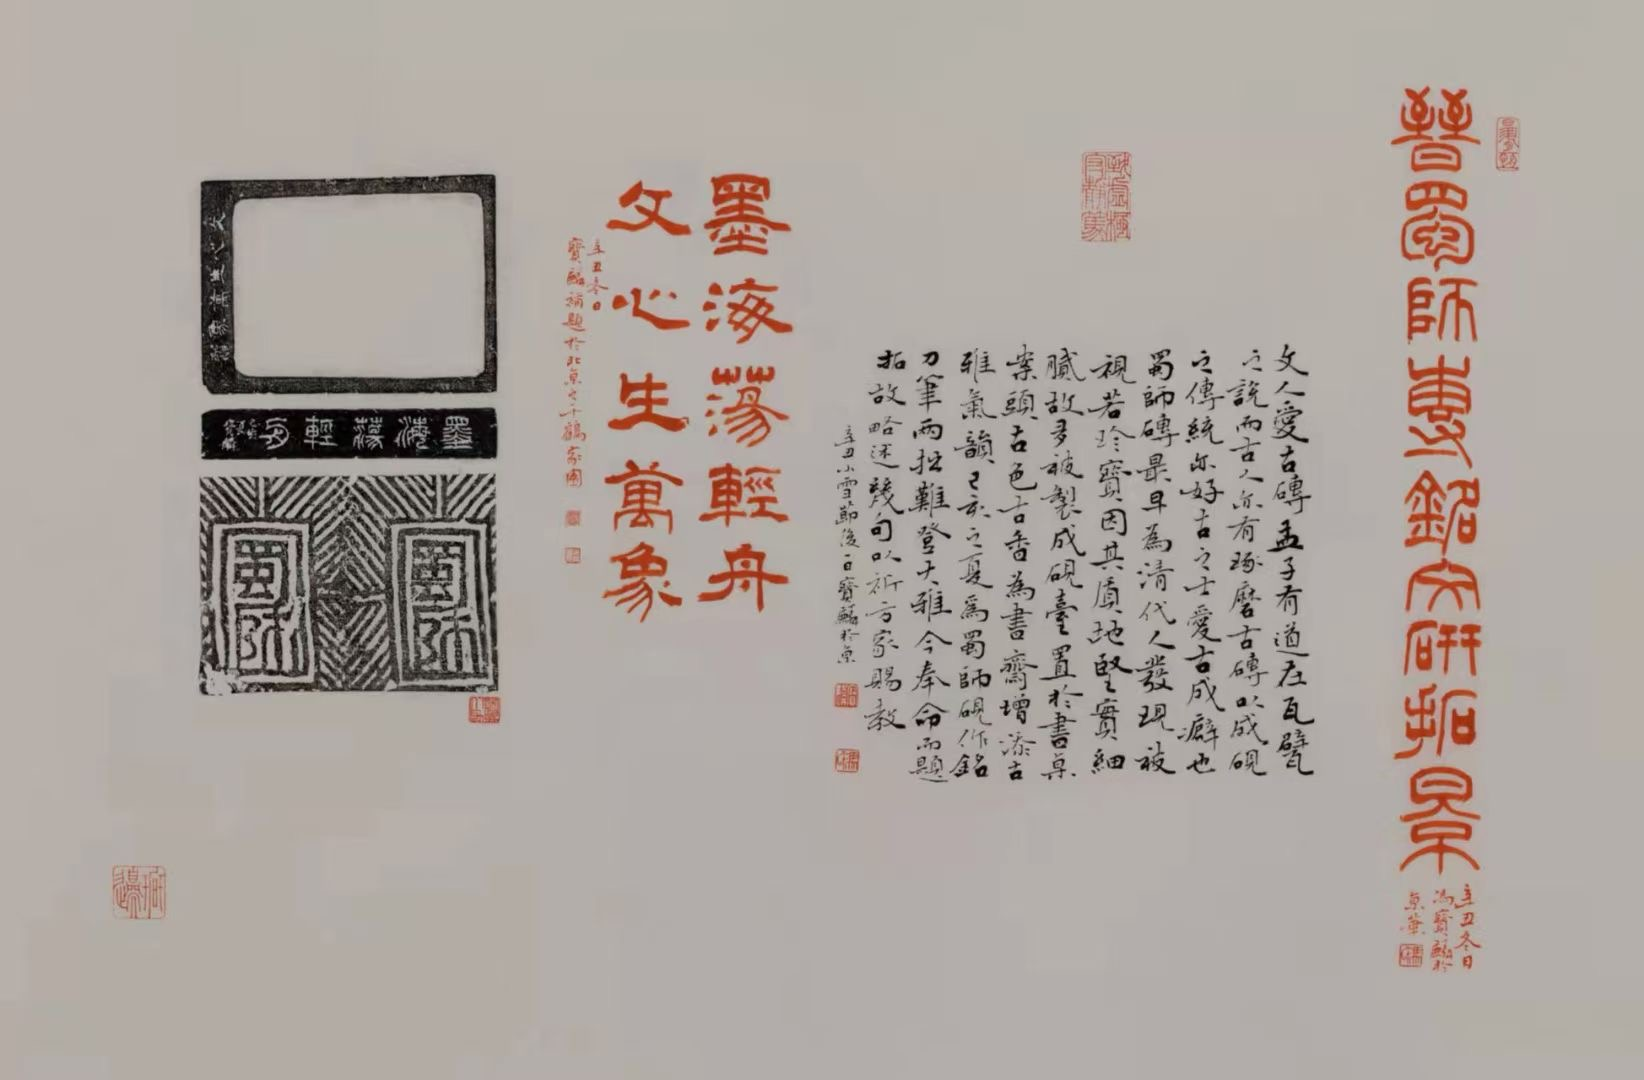 晉蜀師專銘文研拓景
辛丑冬日
馮寶麟於
京華
文人愛古磚孟子有道在瓦甓
之說而古人亦有琢磨古磚以成硯
之傳統亦好古之士愛古成癖也
蜀師磚最早為清代人發現被
視若珍寶因其質地堅實細
膩故多被製成硯臺置於書桌
案頭古色古香為書齋增添古
雅氣韻己亥之夏為蜀師硯作銘
刀筆兩拙難登大雅今奉命而題
拓故略述幾句以祈方家賜教
辛丑小雪節後一日寶麟於京
墨海蕩輕舟
文心生萬象
辛丑冬日
寶麟補題於北京之千鶴家園
文心生萬象
墨海蕩輕舟
蜀師
蜀師